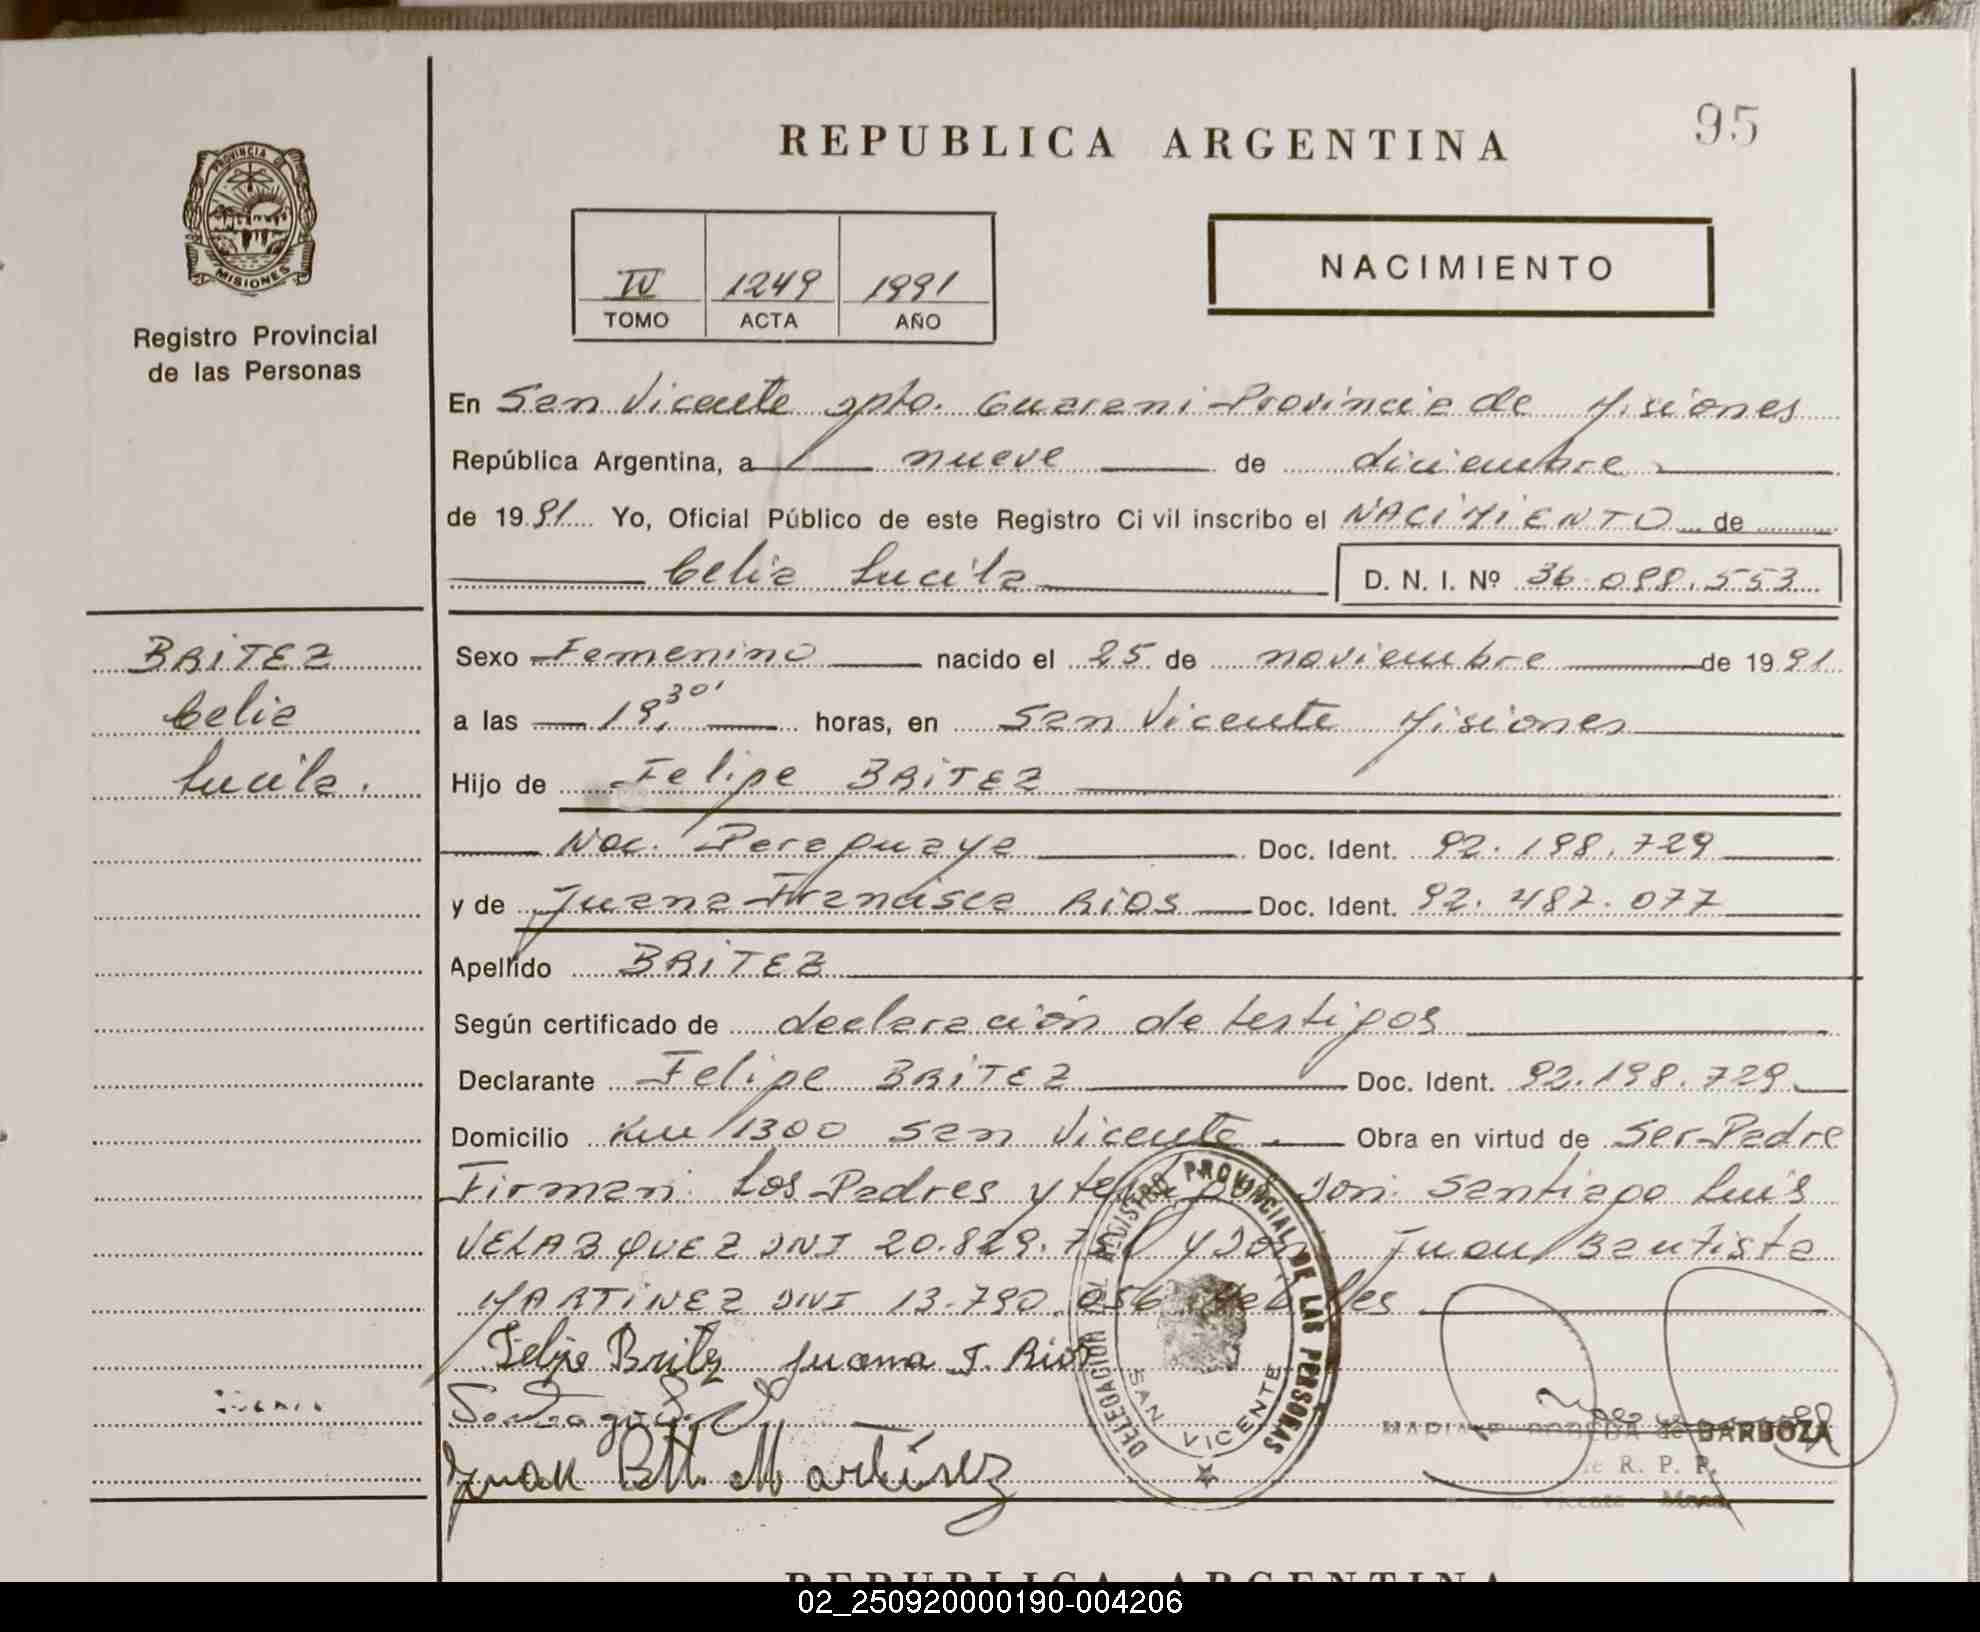 REPUBLICA ARGENTINA
95
PROVINCIA DE
MISIONES
Registro Provincial
de las Personas
IV 1249 1991
TOMO ACTA AÑO
NACIMIENTO
En San Vicente Dpto. Guarani-Provincia de Misiones
República Argentina, a nueve de diciembre
de 1991 Yo, Oficial Público de este Registro Civil inscribo el NACIMIENTO de
Celia Lucila D. N. I. Nº 36.098.553
BRITEZ
Celia
Lucila.
Sexo Femenino nacido el 25 de noviembre de 1991
a las 19,30' horas, en San Vicente Misiones
Hijo de Felipe BRITEZ
Nac. Paraguaya Doc. Ident. 92.198.729
y de Juana Francisca RIOS Doc. Ident. 92.487.077
Apellido BRITEZ
Según certificado de declaración de testigos
Declarante Felipe BRITEZ Doc. Ident. 92.198.729
Domicilio Km 1300 San Vicente Obra en virtud de Ser Padre
Firman: Los Padres y testigos Don: Santiago Luis
VELAZQUEZ DNI 20.829. y Don Juan Bautista
MARTINEZ DNI 13.790.056
Felipe Britez Juana F. Rios
Santiago
Juan Btt. Martínez
DELEGACION REGISTRO PROVINCIAL DE LAS PERSONAS
SAN VICENTE
de BARBOZA
R. P. P.
Vicente
REPUBLICA ARGENTINA
02_250920000190-004206